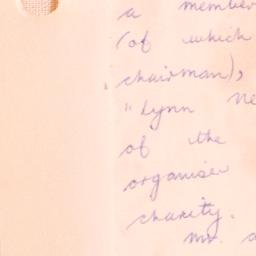 a member
(of which
chairman),
"Lynn Ne
of the
organiser
charity.
Mr. a